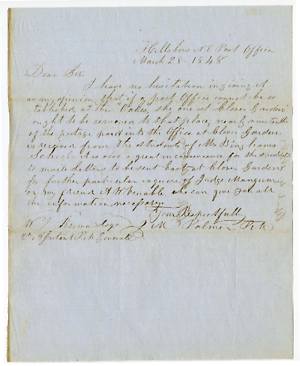 Hillsboro N.C. Post Office
March 28. 1848
Dear Sir
I have no hesitation in giving it
as my opinion that if a Post Office cannot be es-
tablished at the Oaks, the one at Clover Garden
ought to be removed to that place, nearly nine tenths
of the postage paid into the Office at Clover Garden
is received from the students of Mr Binghams
School. It is also a great inconvenience for the
letters to be sent Clover Garden
for further particulars enquire of Judge Mangum
or my friend A W Venable who can give you all
the information necessary.
Yours Respectfully
M Palmer